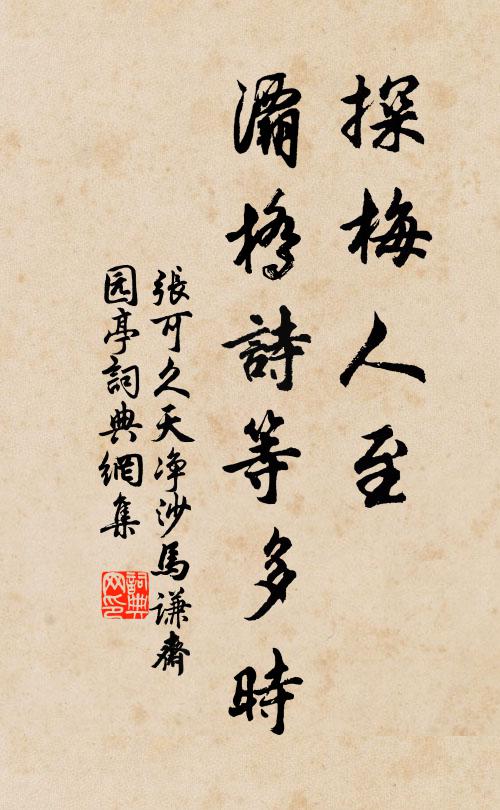 探梅人至
灞橋詩等多時
張可久天净沙馬謙齋
园亭詞典網集
詞典
网印